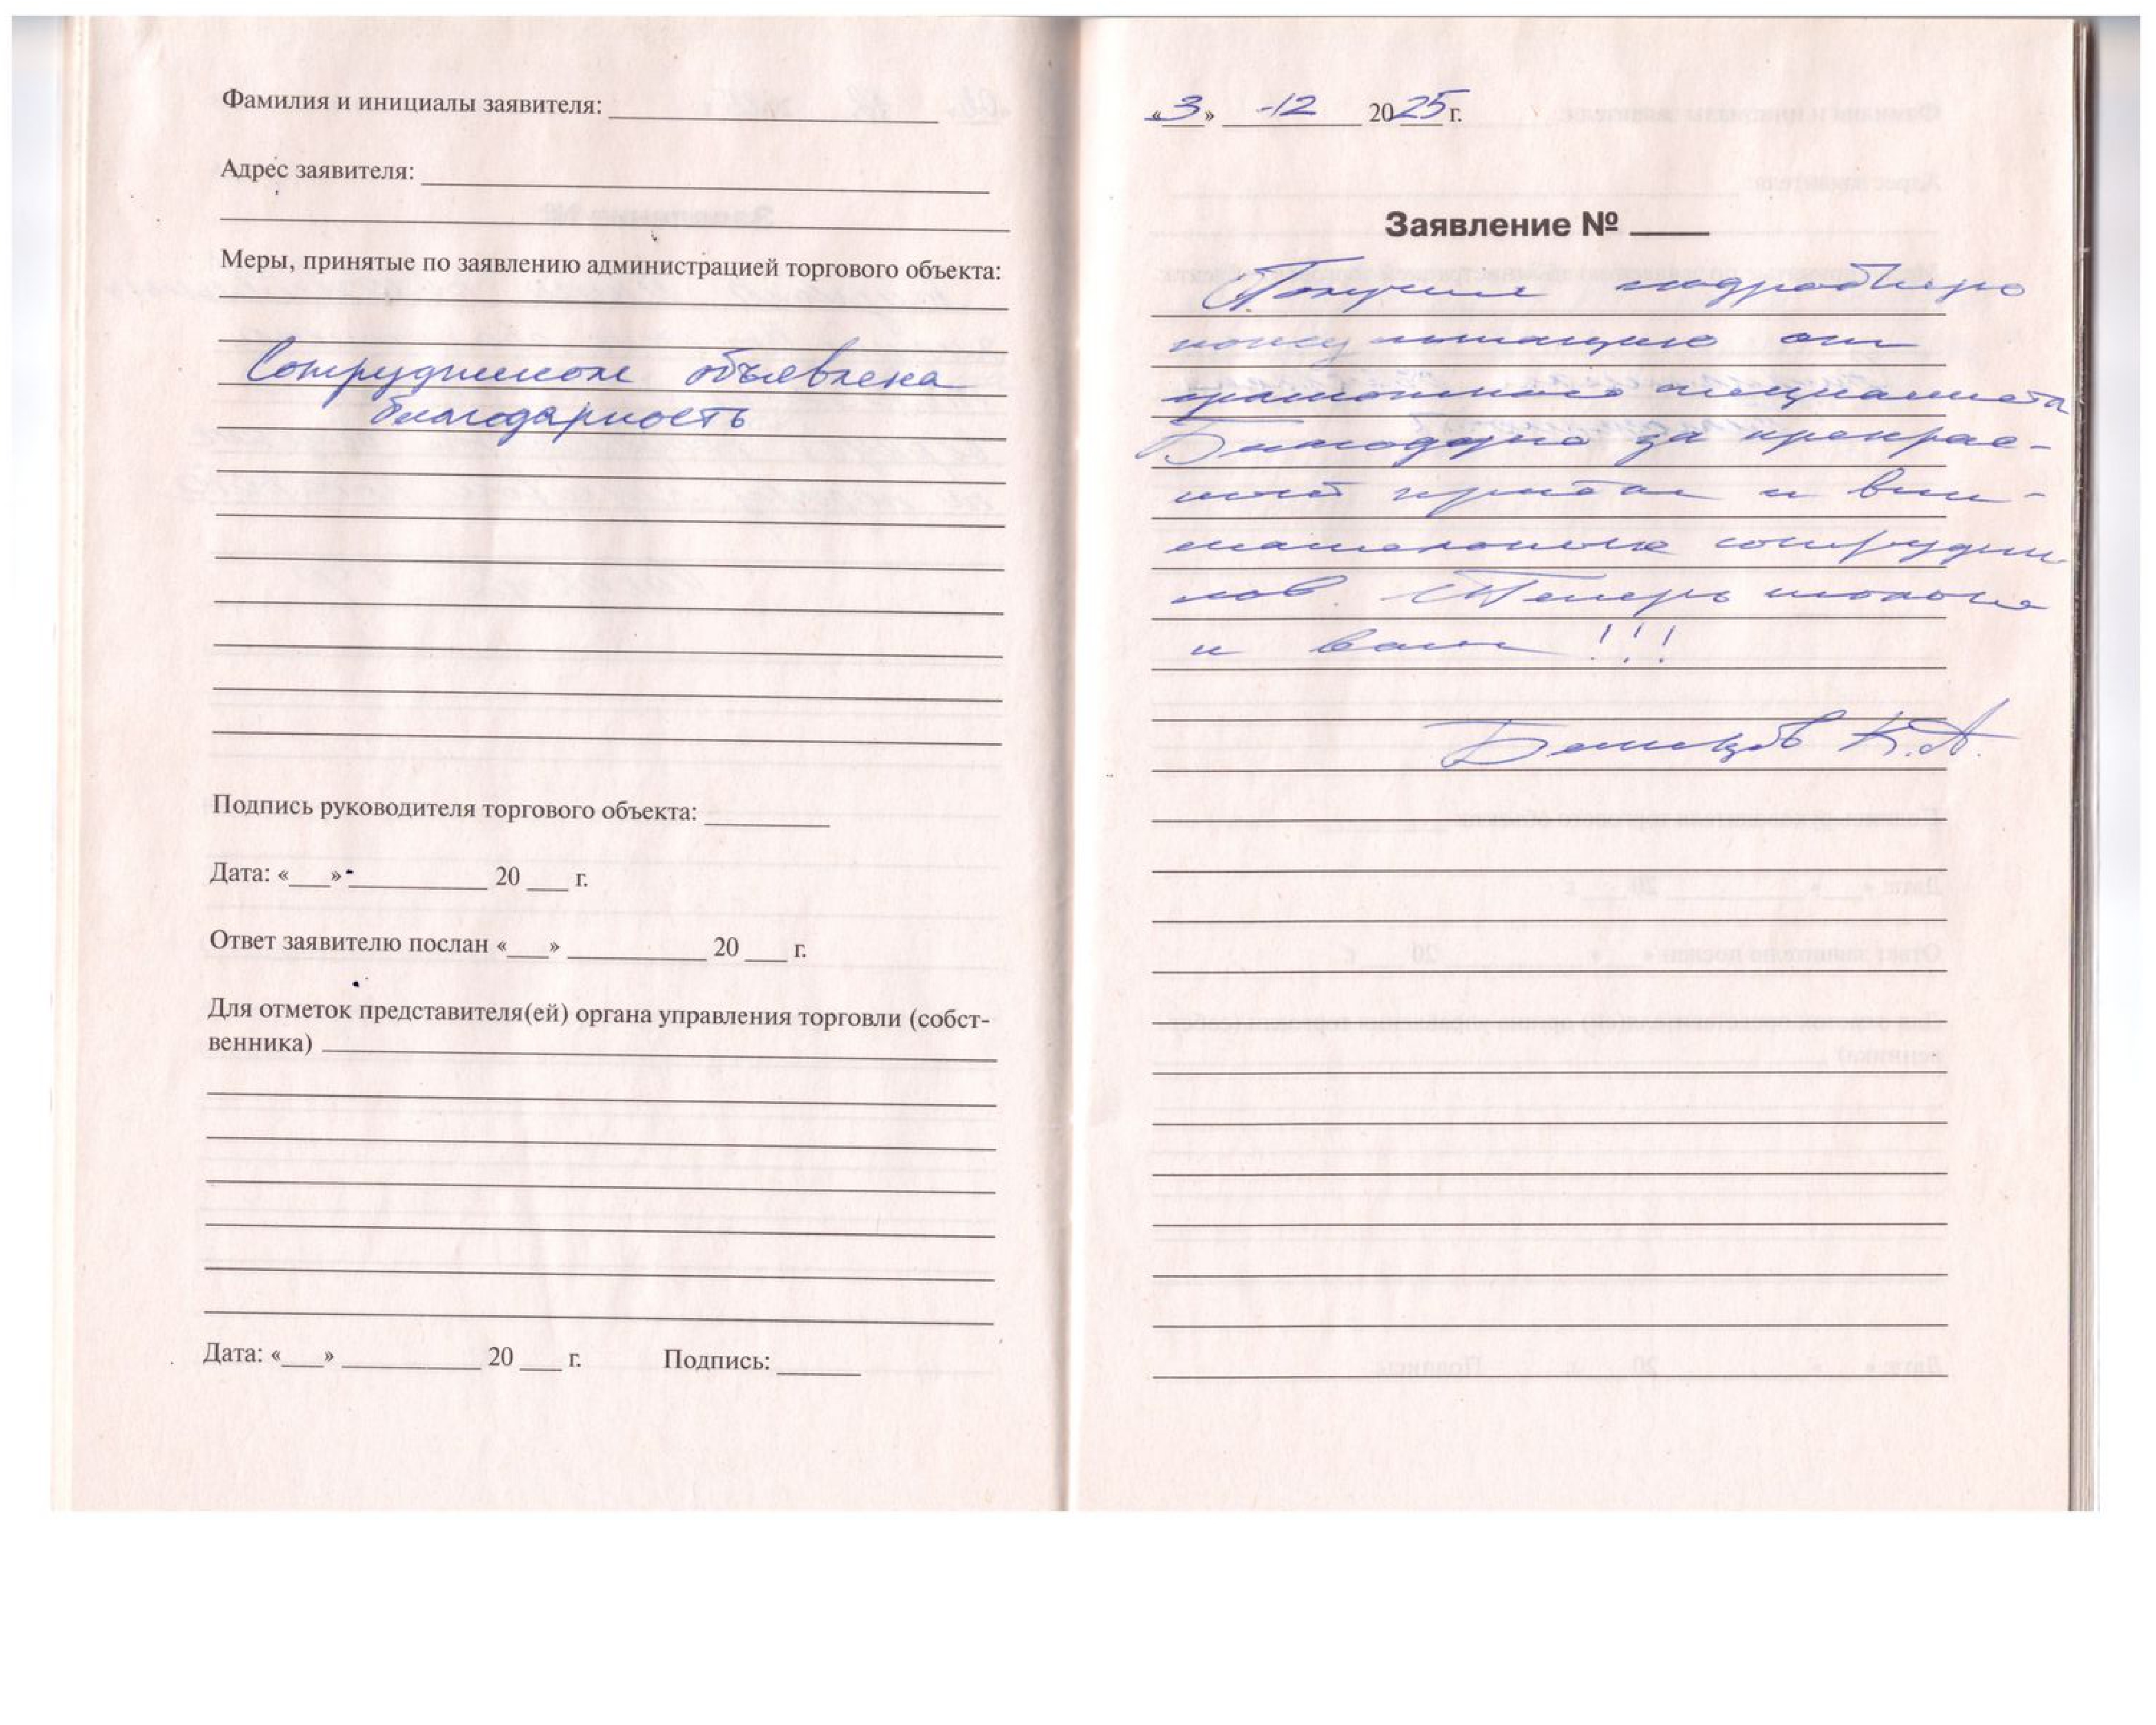 Фамилия и инициалы заявителя:
Адрес заявителя:
Меры, принятые по заявлению администрацией торгового объекта:
Сотрудником объявлена
благодарность
Подпись руководителя торгового объекта:
Дата: «___» ______ 20 ___ г.
Ответ заявителю послан «___» ______ 20 ___ г.
Для отметок представителя(ей) органа управления торговли (собст-
венника)
Дата: «___» ______ 20 ___ г. Подпись:
«3» -12 2025 г.
Заявление № ____
Получил подробную
консультацию от
грамотного специалиста
Благодарю за прекрас-
ный приём и вни-
мательных сотрудни
ков. Теперь только
и вам !!!
К.А.